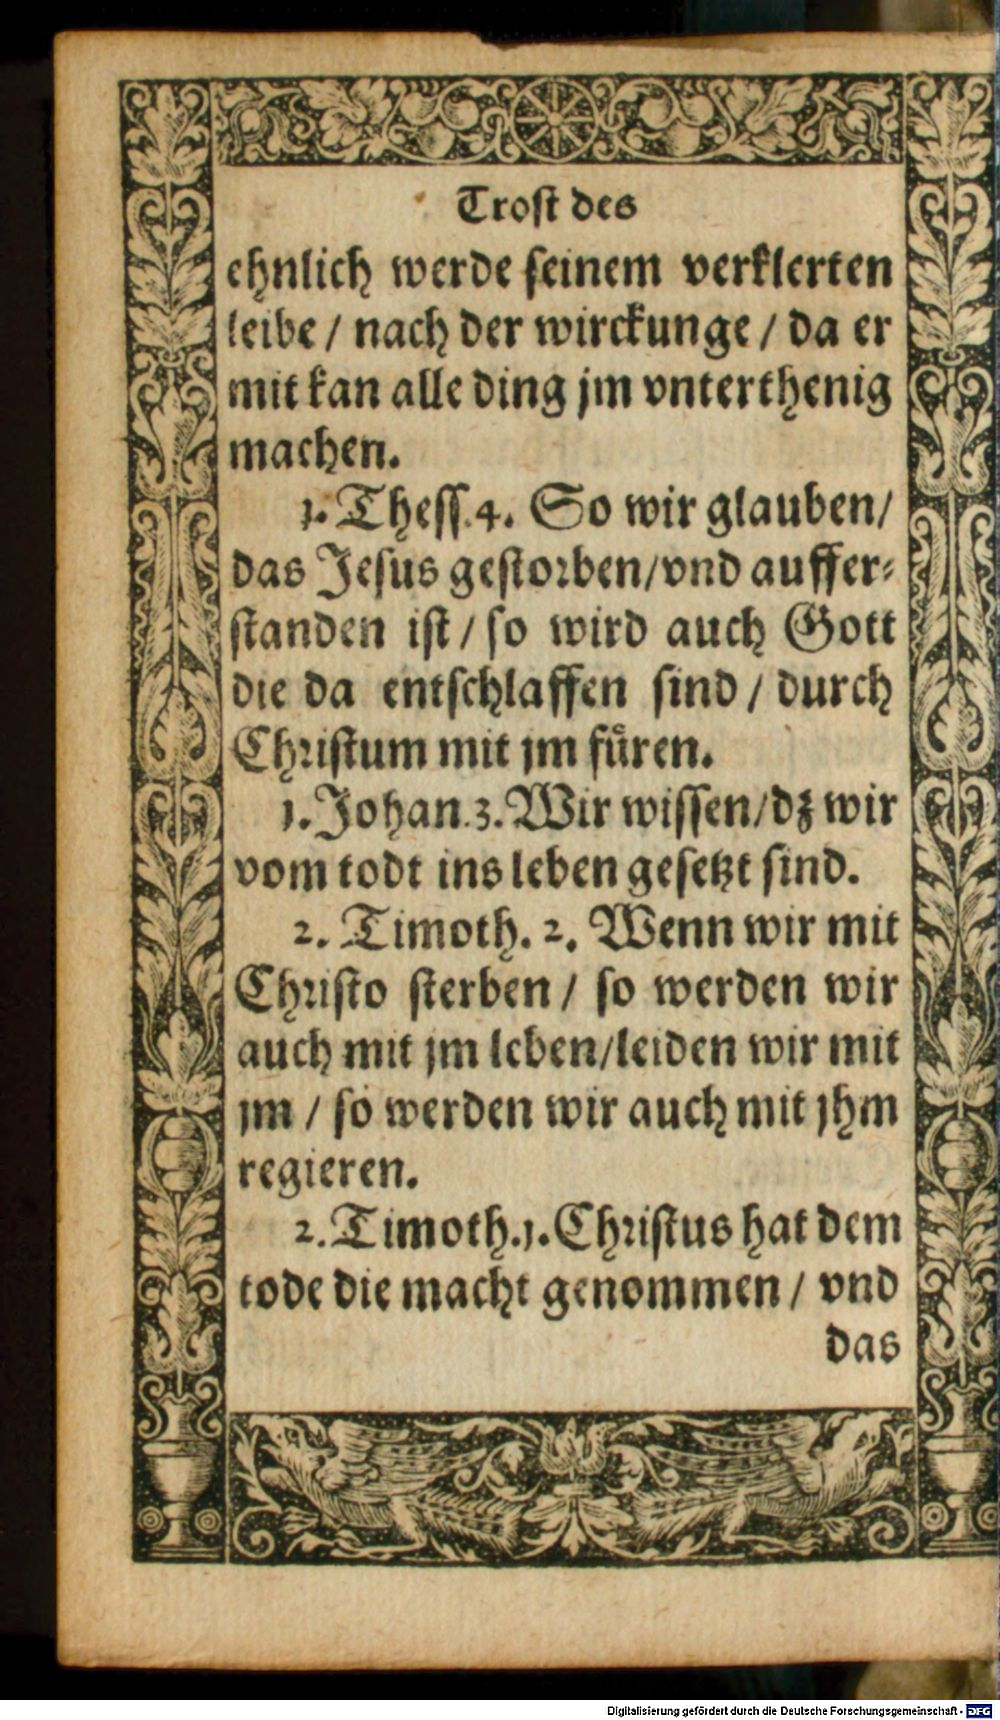 Trost des
ehnlich werde seinem verklerten
leibe / nach der wirckunge / da er
mit kan alle ding jm vnterthenig
machen.
1. Thess. 4. So wir glauben /
das Jesus gestorben / vnd auffer⸗
standen ist / so wird auch Gott
die da entschlaffen sind / durch
Christum mit jm fuͤren.
1. Johan. 3. Wir wissen / dz wir
vom todt ins leben gesetzt sind.
2. Timoth. 2. Wenn wir mit
Christo sterben / so werden wir
auch mit jm leben / leiden wir mit
jm / so werden wir auch mit jhm
regieren.
2. Timoth. 1. Christus hat dem
tode die macht genommen / vnd
das
Digitalisierung gefördert durch die Deutsche Forschungsgemeinschaft - DFG